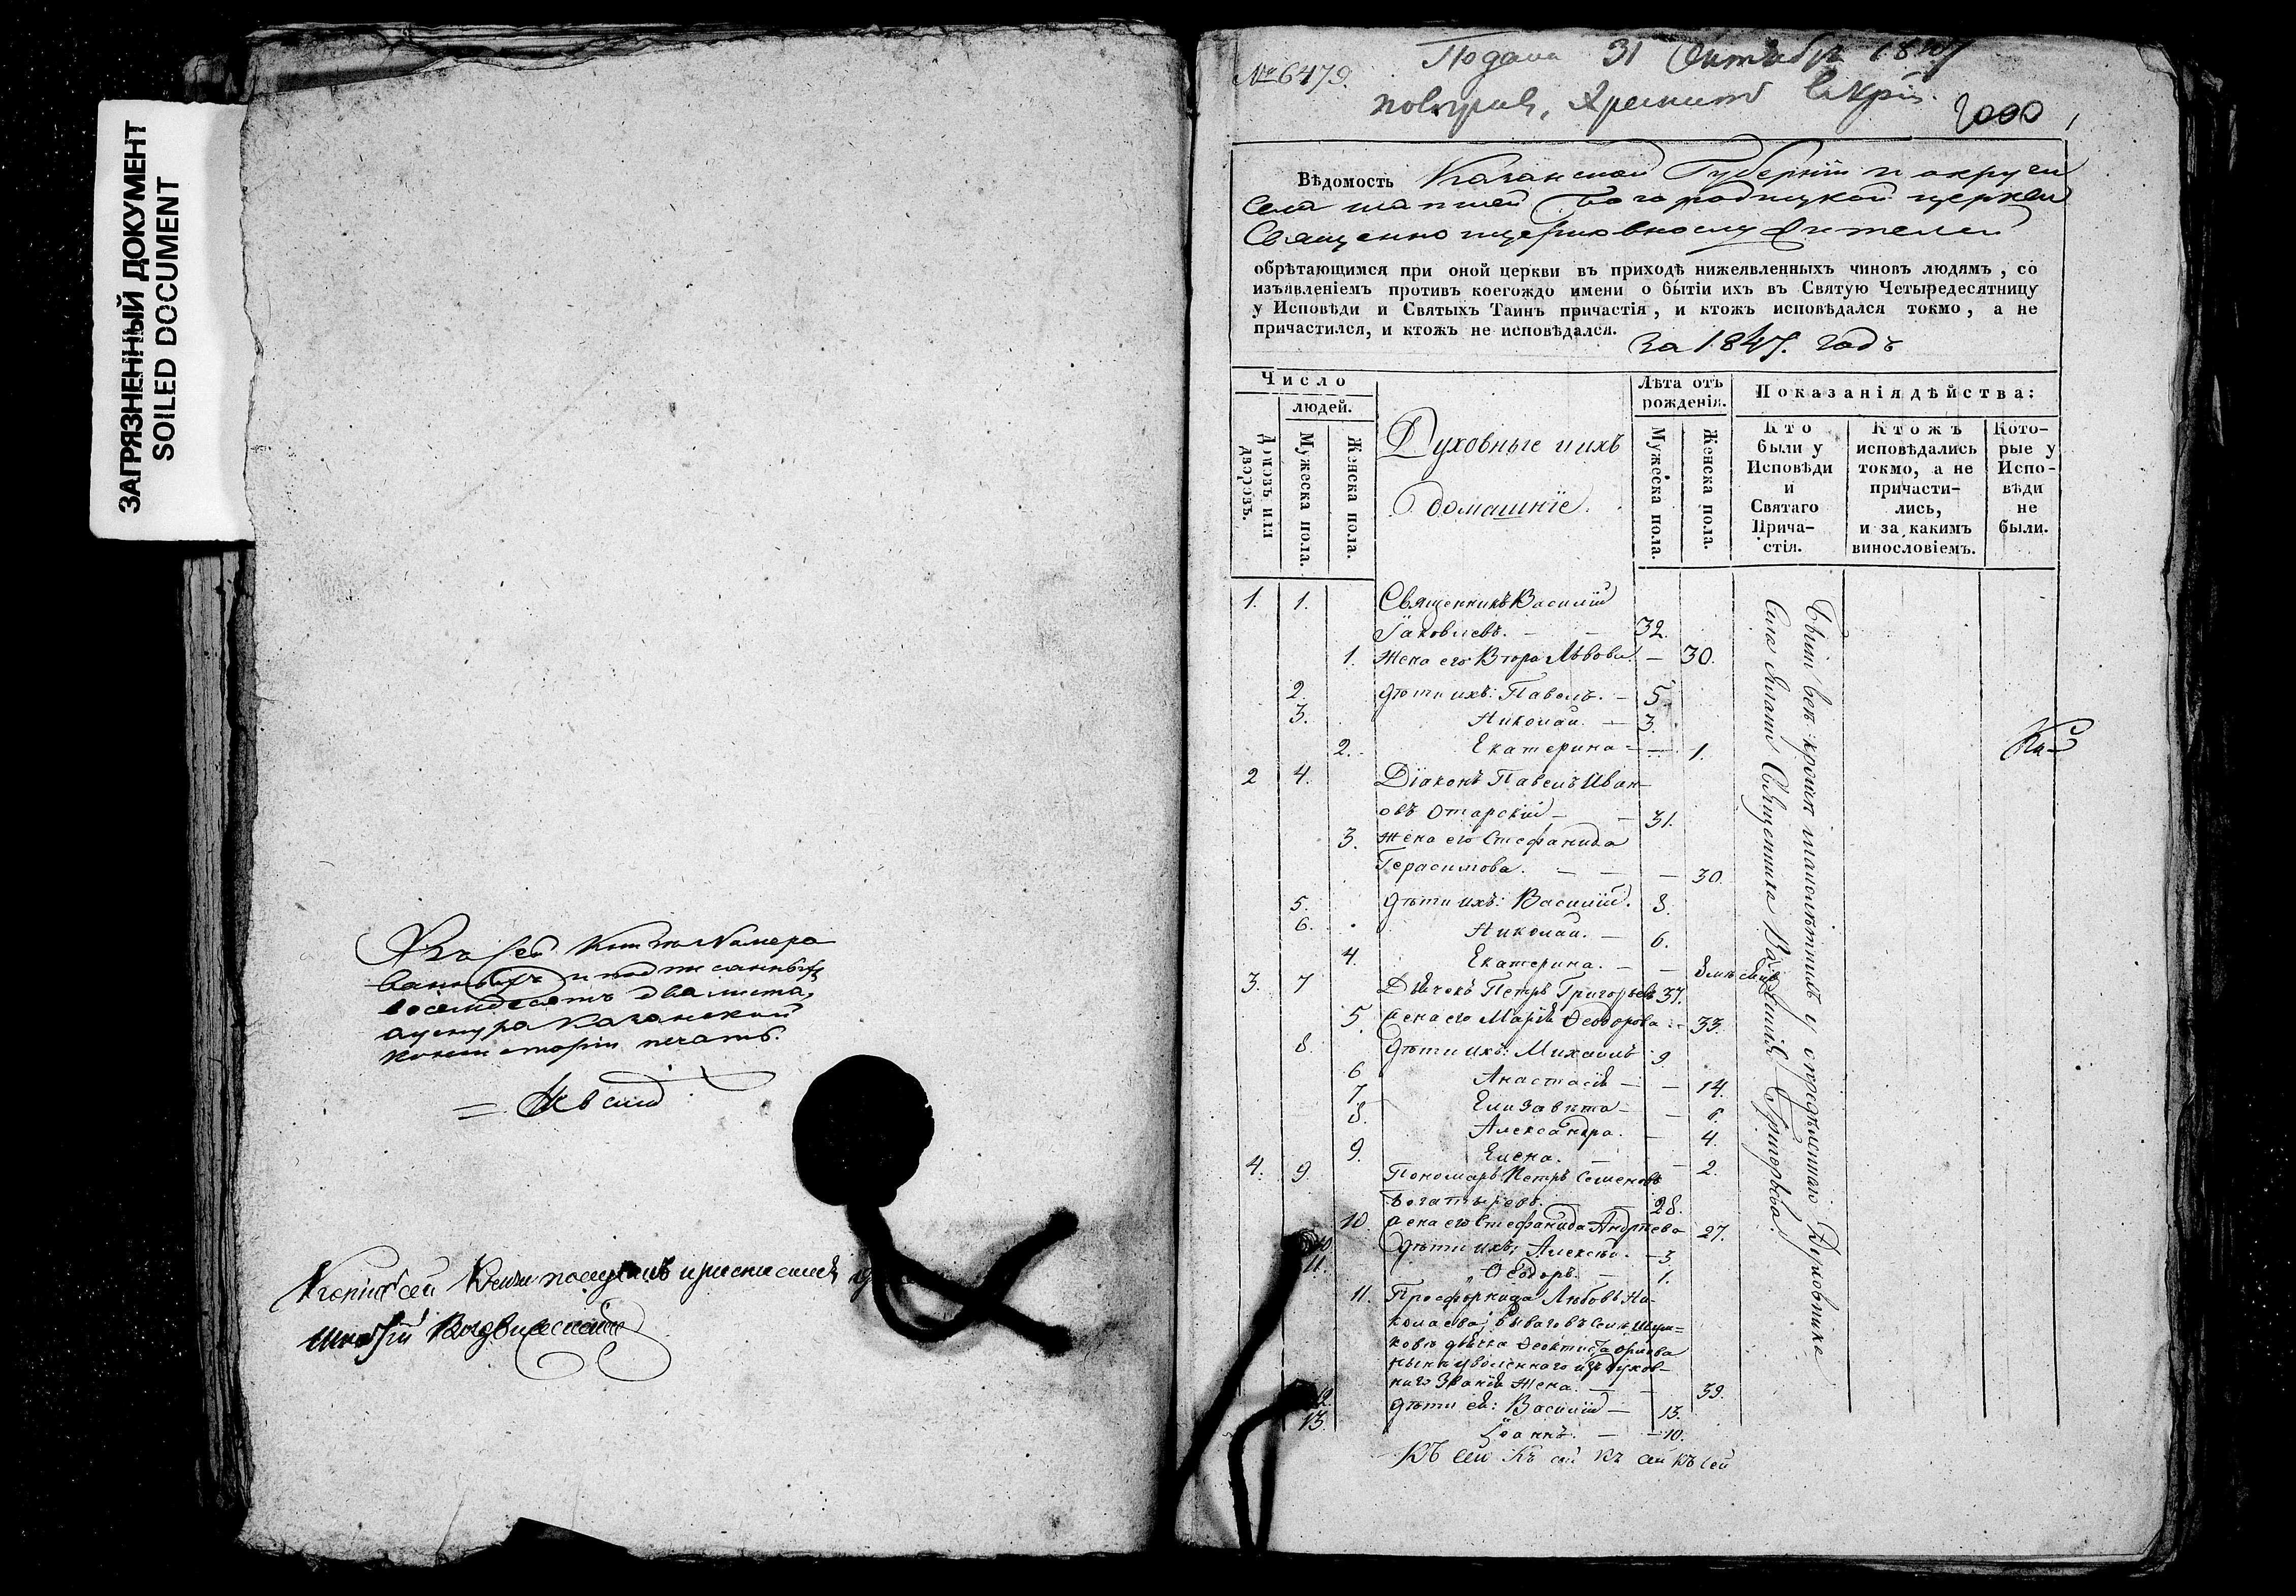 ЗАГРЯЗНЕННЫЙ ДОКУМЕНТ
SOILED DOCUMENT
сей книге Номеро
ванныхъ и подписанныхъ
восемдесятъ два листа,
а у шнура Казанской
консисторіи печать.
Копію сей Книги получилъ
№ 6479.
Подана 31 Октября 1847
2000
1
Вѣдомость Казанской Губерніи и округи
Села Шапшей Богородицкой церкви
Священно и церковнослужителей
обрѣтающимся при оной церкви въ приходѣ нижеявленныхъ чиновъ людямъ, со
изъявленіемъ противъ коегождо имени о бытіи ихъ въ Святую Четыредесятницу
у Исповѣди и Святыхъ Таинъ причастія, и ктожъ исповѣдался токмо, а не
причастился, и ктожъ не исповѣдался.
за 1847. годъ
Число
людей.
Домовъ или дворовъ.
Мужеска пола.
Женска пола.
Духовные и ихъ
домашніе.
Лѣта отъ
рожденія.
Мужеска пола.
Женска пола.
Показанія дѣйства:
Кто
были у
Исповѣди
и
Святаго
Прича-
стія.
Ктожъ
исповѣдались
токмо, а не
причасти-
лись,
и за какимъ
винословіемъ.
Кото-
рые у
Испо-
вѣди
не
были.
1. 1. Священникъ Василій
Іаковлевъ. — 32.
1. Жена его Вѣра Львова — 30.
2. дѣти ихъ: Павелъ. — 5.
3. Николай. — 3.
2. Екатерина — 1.
2 4. Діаконъ Павелъ Иван-
овъ Отарскій — 31.
3. Жена его Стефанида
Герасимова. — 30.
5. дѣти ихъ: Василій. 8.
6. Николай. — 6.
4. Екатерина. —
3. 7 Дьячекъ Петръ Григорьевъ 37.
5. Жена его Марія Ѳеодорова — 33.
8. дѣти ихъ: Михаилъ 9
6 Анастасія — 14.
7 Елизавета —
8. Александра. — 4.
9. Елена. — 2.
4. 9. Пономарь Петръ Семеновъ
Богатыревъ — 28.
10. Жена его Стефанида Андреева 27.
10. дѣти ихъ: Алексѣй. — 3
11. Ѳеодоръ. — 1.
11. Просфорница Любовь Ни-
колаева, бывшаго въ селѣ
дьячка Ѳеоктиста
нынѣ уволеннаго изъ духов-
наго званія Жена. — 39.
12. дѣти ея: Василій — 13.
13. Іоаннъ. — 10.
Къ сей Къ сей Къ сей Къ сей
Были всѣ кромѣ малолѣтнихъ у опредѣленнаго Духовника
Села Священника Григорьева.